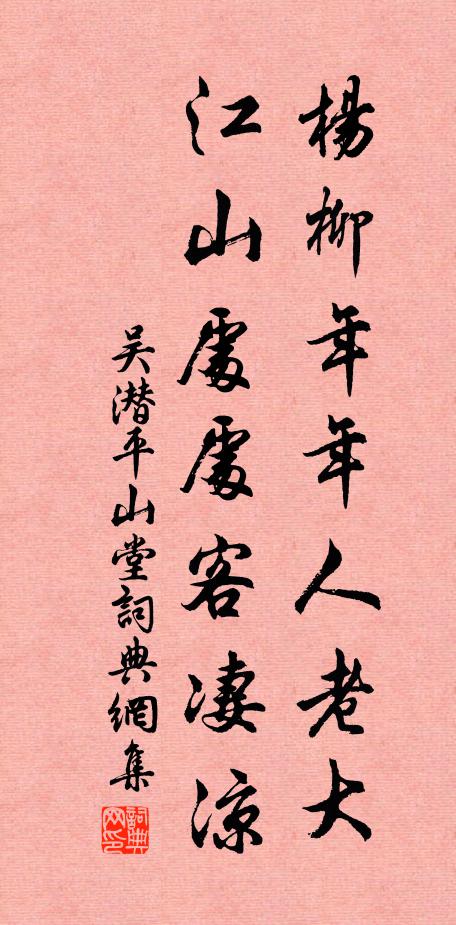 楊柳年年人老大
江山處處客凄涼
吴潜平山堂詞典網集
詞典網印